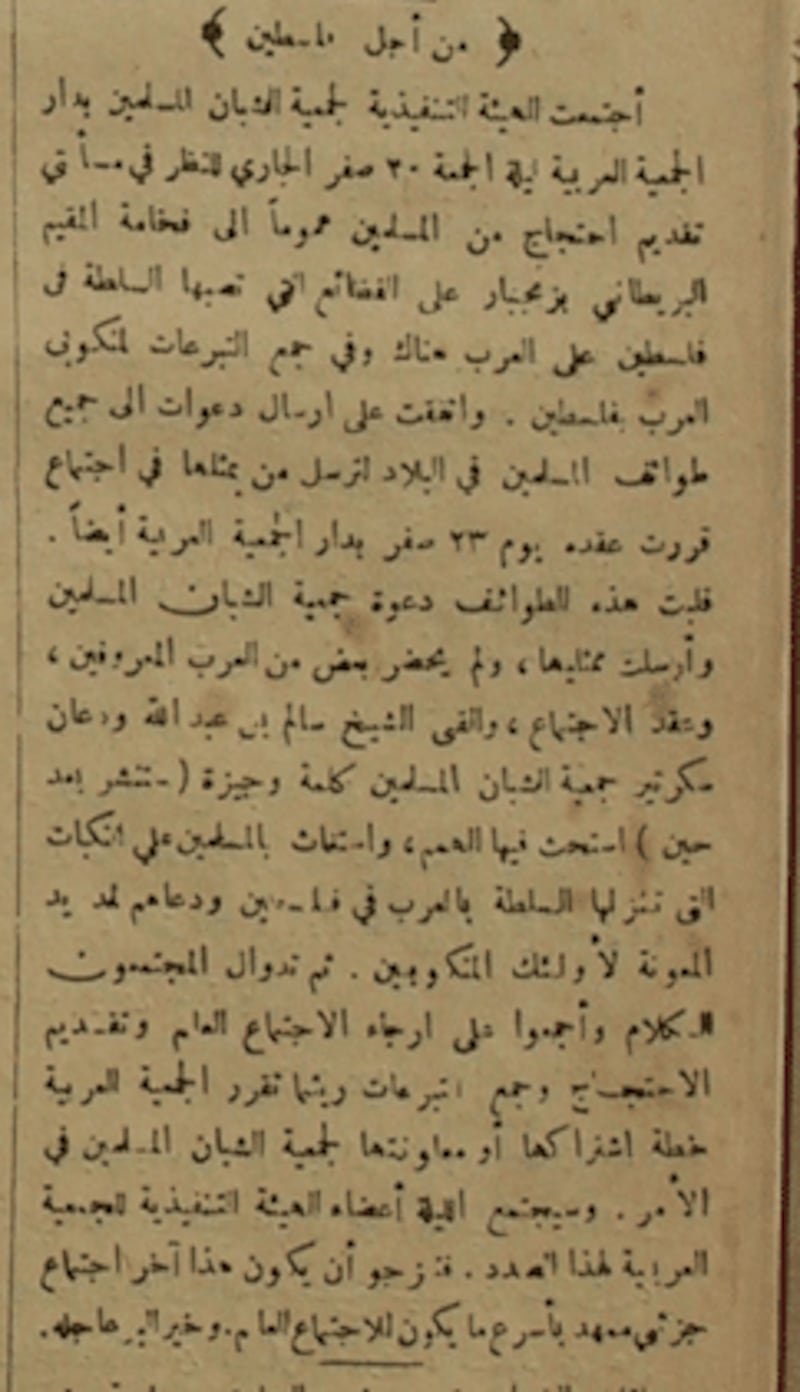 ﴿ من أجل فلسطين ﴾
أجتمعت الهيئة التنفيذية لجمعية الشبان المسلمين بدار
الجمعية العربية ليلة الجمعة ٢٠ صفر الجاري للنظر في مسألتي
تقديم احتجاج من المسلمين عموماً الى فخامة المقيم
البريطاني بزنجبار على الفظائع التي تصبها السلطة في
فلسطين على العرب هناك وفي جمع التبرعات لمنكوبي
العرب بفلسطين . واتفقت على ارسال دعوات الى جميع
طوائف المسلمين في البلاد لترسل من يمثلها في اجتماع
قررت عقده يوم ٢٣ صفر بدار الجمعية العربية أيضاً .
قبلت هذه الطوائف دعوة جمعية الشبان المسلمين
وأرسلت ممثليها ، ولم يحضر بعض من العرب المعروفين ،
وعقد الاجتماع ، والقى الشيخ سالم بن عبد الله ودعان
سكرتير جمعية الشبان المسلمين كلمة وجيزة ( ستنشر بعد
حين ) استنهض فيها الهمم ، واستغاث بالمسلمين على النكبات
التي تنزلها السلطة بالعرب في فلسطين ودعاهم لمد يد
المعونة لأولئك المنكوبين . ثم تداول المجتمعون
الكلام وأجمعوا على ارجاء الاجتماع العام وتقديم
الاحتجاج وجمع التبرعات ريثما تقرر الجمعية العربية
خطة اشتراكها أو معاونتها لجمعية الشبان المسلمين في
الأمر . وسيجتمع الليلة أعضاء الهيئة التنفيذية للجمعية
العربية لهذا الصدد . فنرجو أن يكون هذا آخر اجتماع
جزئي يمهد بأسرع ما يكون للاجتماع العام . وخير البر عاجله .